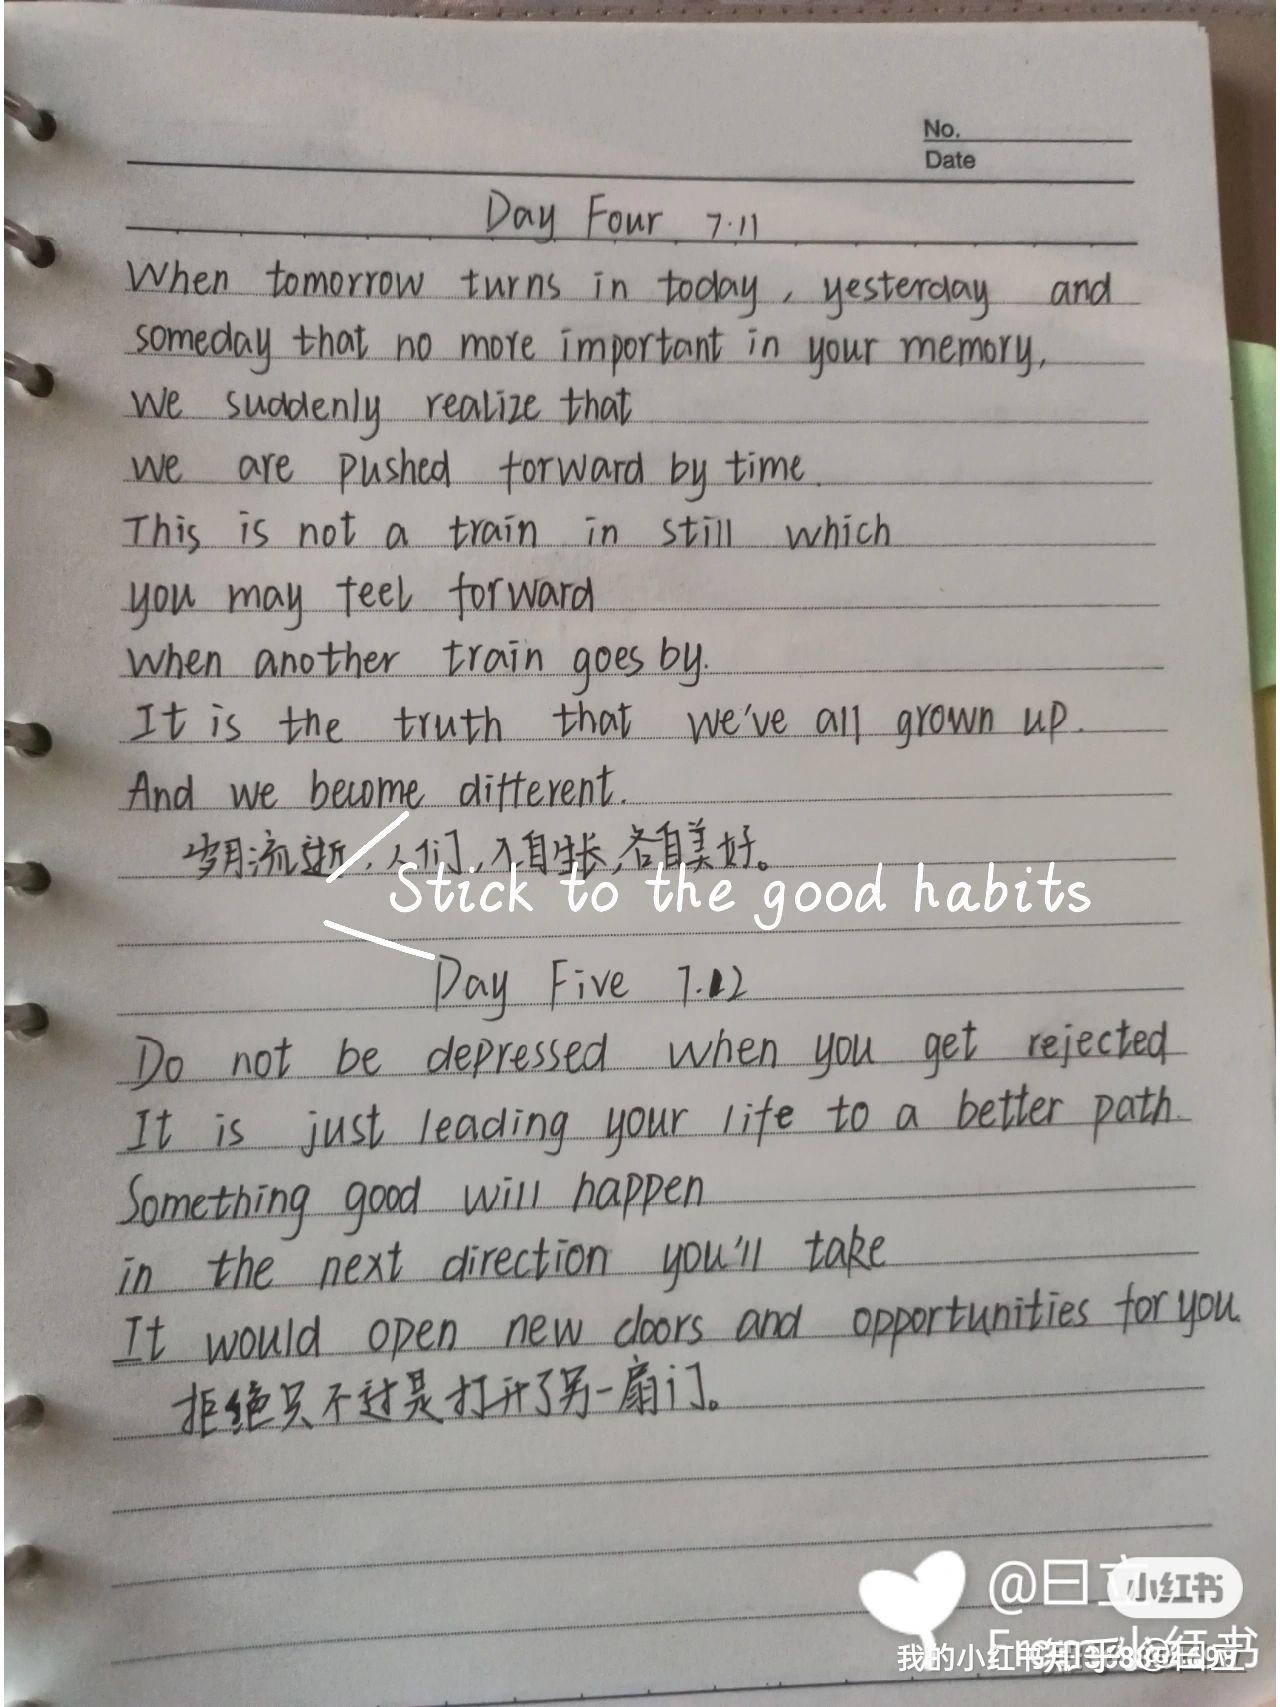 No.
Date
Day Four 7.11
When tomorrow turns in today, yesterday and
someday that no more important in your memory,
we suddenly realize that
we are pushed forward by time.
This is not a train in still which
you may feel forward
when another train goes by.
It is the truth that we've all grown up.
And we become different.
岁月流逝,人们,入自生长,各自美好。
Stick to the good habits
Day Five 7.12
Do not be depressed when you get rejected
It is just leading your life to a better path.
Something good will happen
in the next direction you'll take
It would open new doors and opportunities for you.
拒绝只不过是打开了另一扇门。
小红书
我的小红书